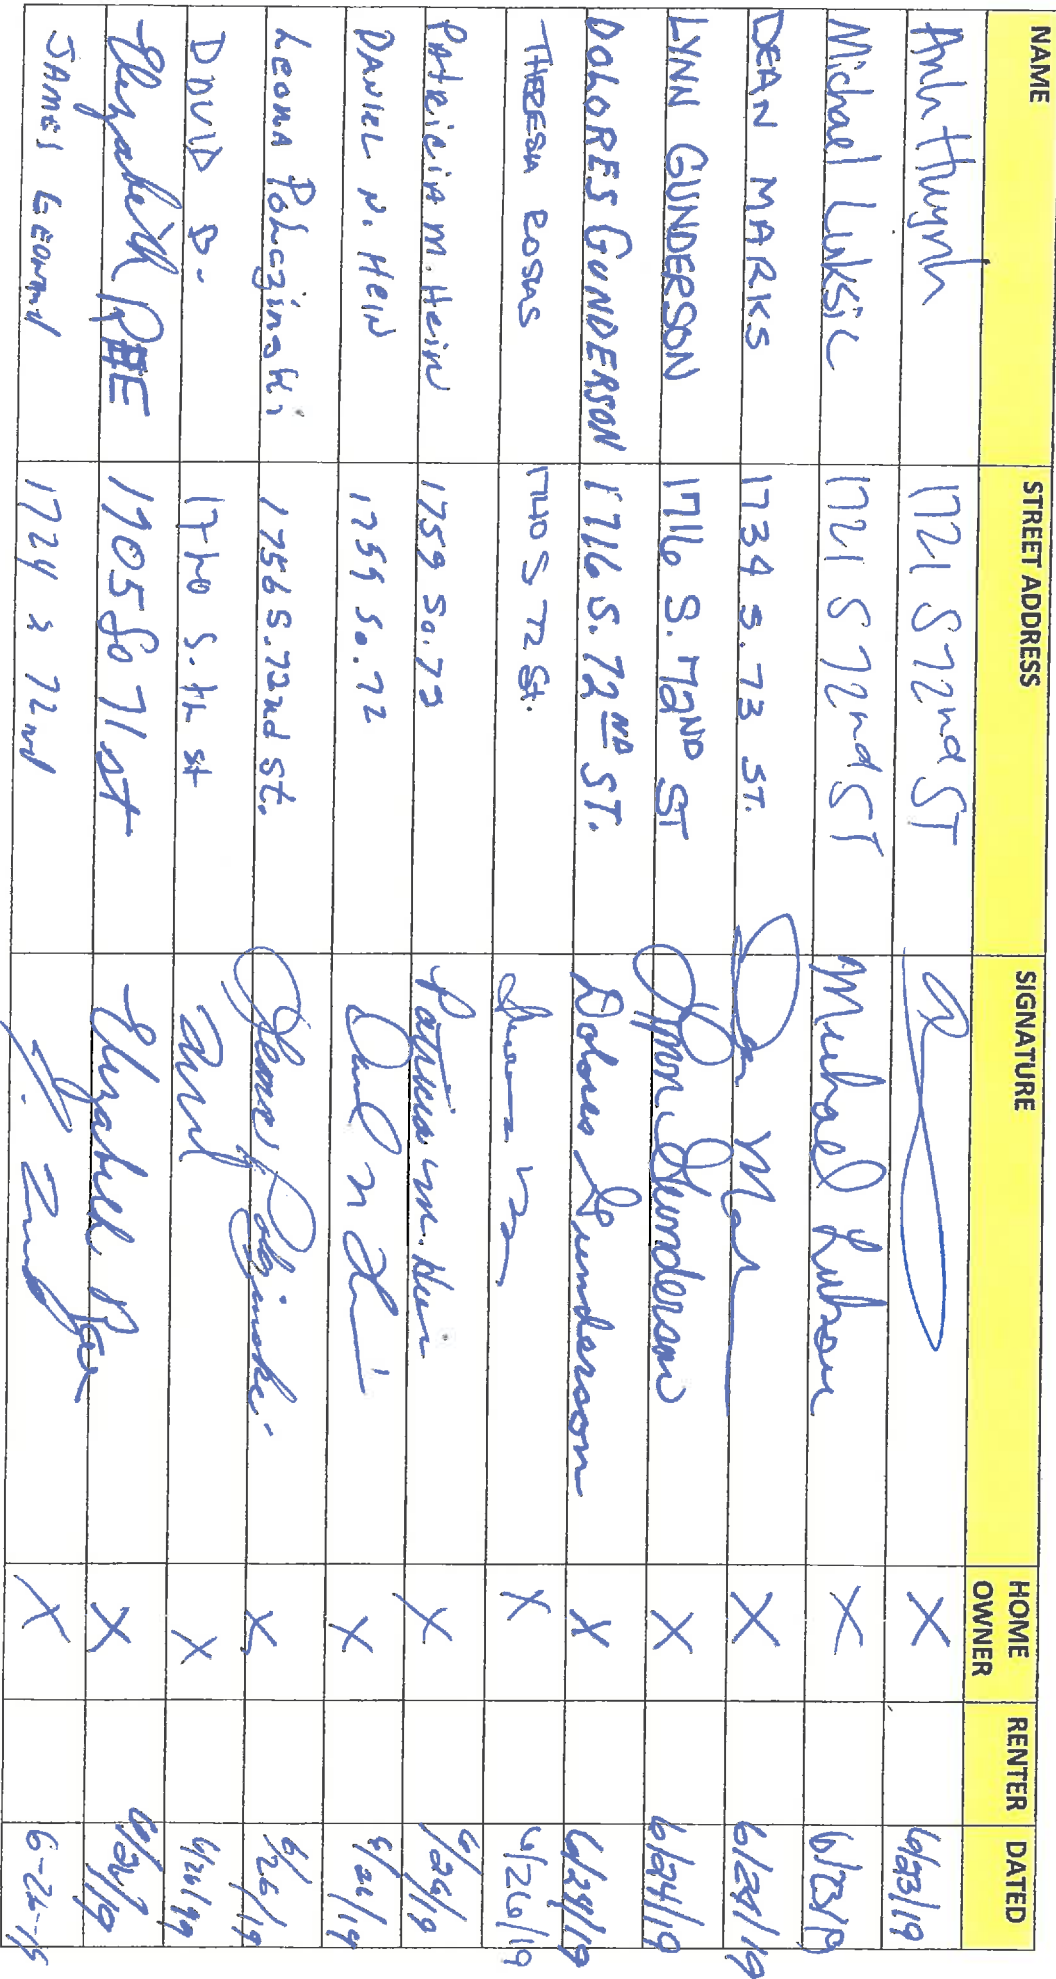 NAME STREET ADDRESS SIGNATURE HOME OWNER RENTER DATED
Anh Huynh 1721 S 72nd ST X 6/23/19
Michael Luksic 1721 S 72nd ST Michael Luksic X 6/23/19
DEAN MARKS 1734 S. 73 ST. Dean Mar X 6/24/19
LYNN GUNDERSON 1716 S. 72ND ST Lynn Gunderson X 6/24/19
DOLORES GUNDERSON 1716 S. 72ND ST. Dolores Gunderson X 6/24/19
THERESA ROSAS 1740 S 72 St. X 6/26/19
PAtRiciA M. Hein 1759 So. 73 Patricia M. Hein X 6/26/19
DANIEL N. HEIN 1759 So. 72 X 6/26/19
LEONA Polczinski 1756 S. 72nd St. Leona Polczinski X 6/26/19
DAVID B. S. St David X 6/26/19
Elizabeth 1705 So 71 st Elizabeth X 6/26/19
JAMES LEONARD 1724 S 72nd X